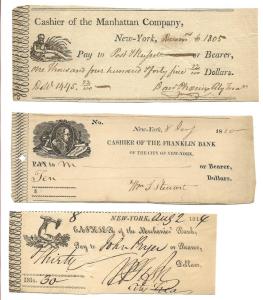 Cashier of the Manhattan Company,
New-York, 6 1805
Pay to Post & Russell or Bearer,
one thousand four hundred & forty five 22/100 Dollars.
Doll.s 1445. 22/100
No.
New-York, 8 1810
CASHIER OF THE FRANKLIN BANK
OF THE CITY OF NEW-YORK,
PAY TO or Bearer,
Ten Dollars.
$ Wm. S. Stewart
8 NEW-YORK, Aug 2 1816
CASHIER of the Mechanics' Bank,
Pay to John Pryer or Bearer,
Thirty Dollars.
Dls. 30